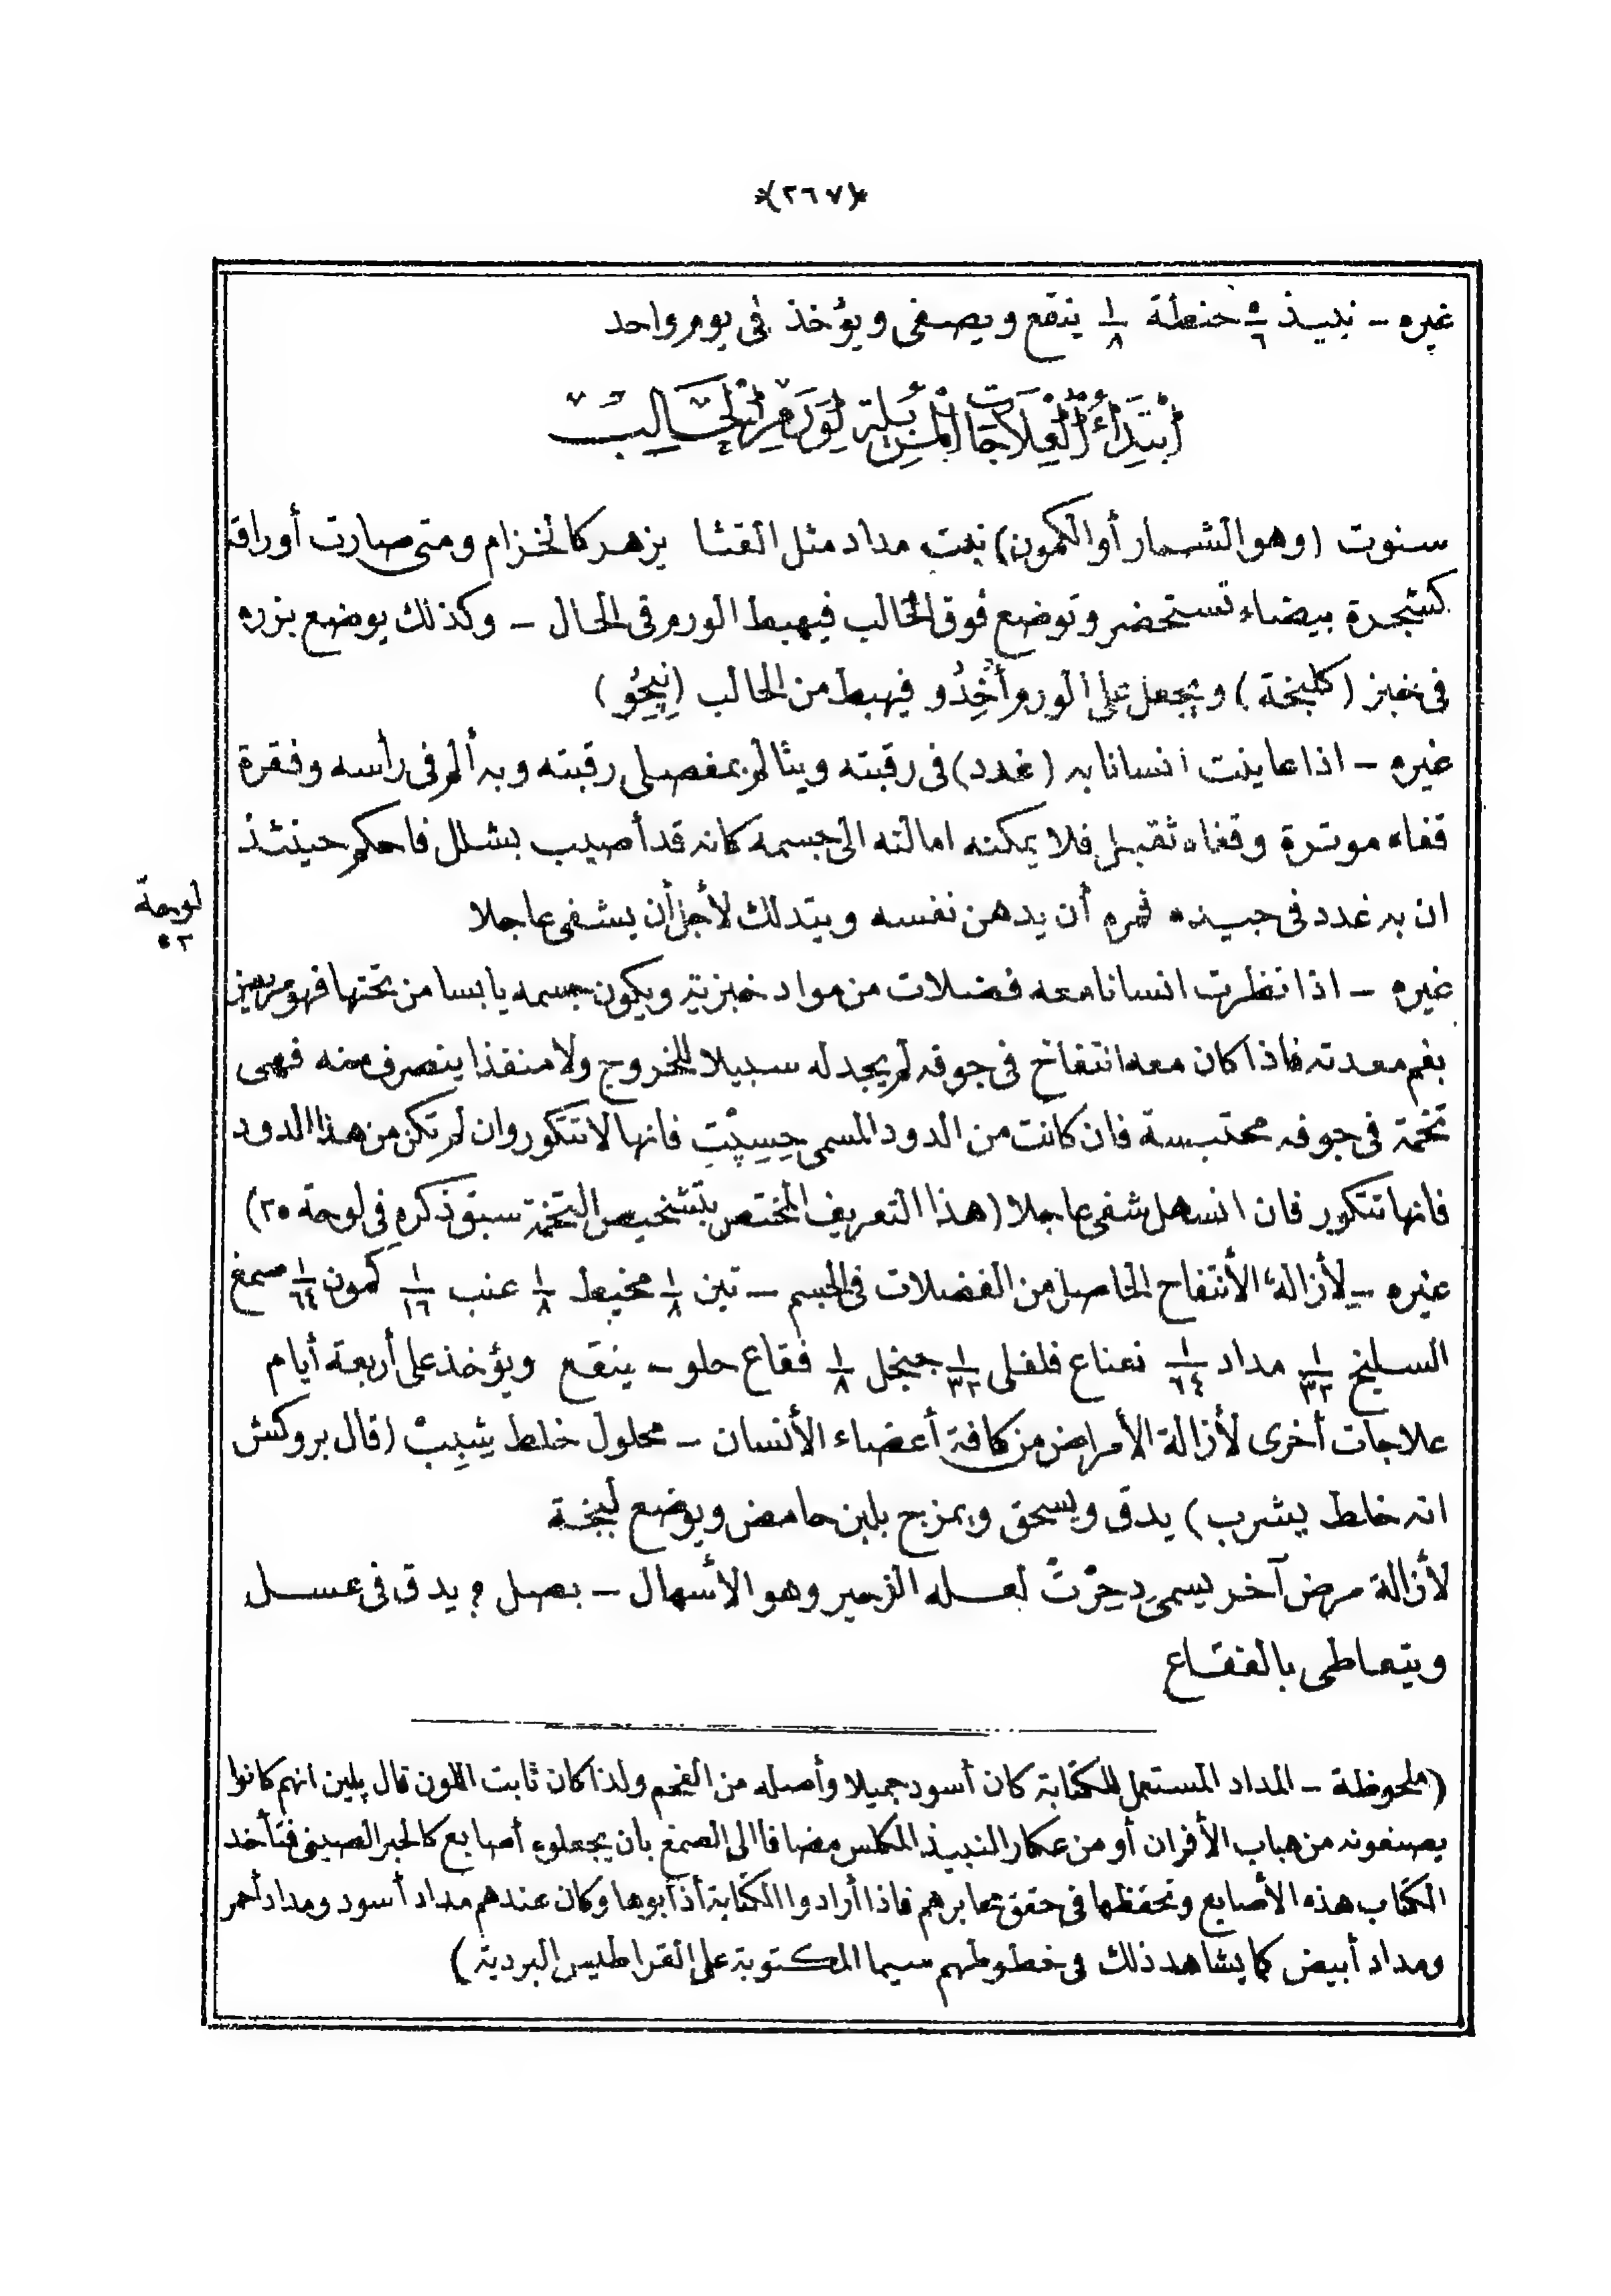 *(٢٦٧)*
غيره - نبيذ ٥/٦ حنطة ١/٨ ينقع ويصفى ويؤخذ فى يوم واحد
اِبْتِدَاءُ الْعِلَاجَاتِ الْمُزِيلَةِ لِوَرَمِ الْحَالِبْ
سنوت (وهو الشمار أو الكمون) نبت مداد مثل القثا يزهر كالخزام ومتى صارت أوراقه
كشجرة بيضاء تستحضر وتوضع فوق الحالب فيهبط الورم فى الحال - وكذلك يوضع بزره
فى خبز (كلبخة) ويجعل على الورم أَخِدُو فيهبط من الحالب (نِيِحُو)
غيره - اذا عاينت انسانا به (غدد) فى رقبته ويتألم بمفصلى رقبته وبه ألم فى رأسه وفقرة
قفاه موترة وقفاه ثقيل فلا يمكنه امالته الى جسمه كانه قد أصيب بشلل فاحكم حينئذ
لوحة
٥٢
ان به غدد فى جيده فمره أن يدهن نفسه ويتدلك لأجل أن يشفى عاجلا
غيره - اذا نظرت انسانا معه فضلات من مواد خبزية ويكون جسمه يابسا من تحتها فهو مريض
بفم معدته فاذا كان معه انتفاخ فى جوفه لم يجد له سبيلا للخروج ولا منفذا ينصرف منه فهى
تخمة فى جوفه محتبسة فان كانت من الدود المسمى حِسِبِتْ فانها لا تتكور وان لم تكن من هذا الدود
فانها تتكور فان انسهل شفى عاجلا (هذا التعريف المختص بتشخيص التخمة سبق ذكره فى لوحة ٢٥)
غيره - لأزالة الأنتفاح الحاصل من الفضلات فى الجسم - تين ١/٨ مخيط ١/٨ عنب ١/١٦ كمون ١/٦٤ صمغ
السليخ ١/٣٢ مداد ١/٦٤ نعناع فلفلى ١/٣٢ جنجل ١/٨ فقاع حلو - ينقع ويؤخذ على أربعة أيام
علاجات أخرى لأزالة الأمراض من كافة أعضاء الأنسان - محلول خلط يِشِبِبْ (قال بروكش
انه خلط يشرب) يدق ويسحق ويمزج بلبن حامض ويوضع لبخة
لأزالة مرض آخر يسمى دِحِرْتْ لعله الزحير وهو الأسهال - بصل ؟ يدق فى عسل
ويتعاطى بالفقاع
(ملحوظة - المداد المستعمل للكتابة كان أسود جميلا وأصله من الفحم ولذا كان ثابت اللون قال پلين انهم كانوا
يصنعونه من هباب الأفران أو من عكار النبيذ المكلس مضافا الى الصمغ بان يجعلوه أصابع كالحبر الصينى فتأخذ
الكتاب هذه الأصابع وتحفظها فى حقق محابرهم فاذا أرادوا الكتابة أذابوها وكان عندهم مداد أسود ومداد أحمر
ومداد أبيض كما يشاهد ذلك فى خطوطهم سيما المكتوبة على القراطيس البردية)